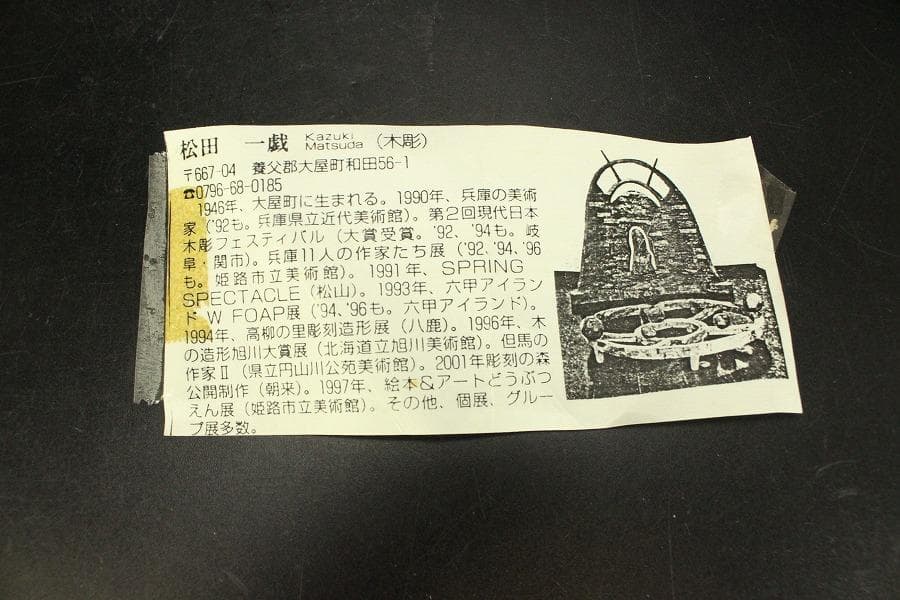 松田 一戯 Kazuki Matsuda (木彫)
〒667-04 養父郡大屋町和田56-1
☎0796-68-0185
1946年、大屋町に生まれる。1990年、兵庫の美術
家('92も。兵庫県立近代美術館)。第2回現代日本
木彫フェスティバル(大賞受賞。'92、'94も。岐
阜・関市)。兵庫11人の作家たち展('92、'94、'96
も。姫路市立美術館)。1991年、SPRING
SPECTACLE(松山)。1993年、六甲アイラン
ドW FOAP展('94、'96も。六甲アイランド)。
1994年、高柳の里彫刻造形展(八鹿)。1996年、木
の造形旭川大賞展(北海道立旭川美術館)。但馬の
作家Ⅱ(県立円山川公苑美術館)。2001年彫刻の森
公開制作(朝来)。1997年、絵本&アートどうぶつ
えん展(姫路市立美術館)。その他、個展、グルー
プ展多数。